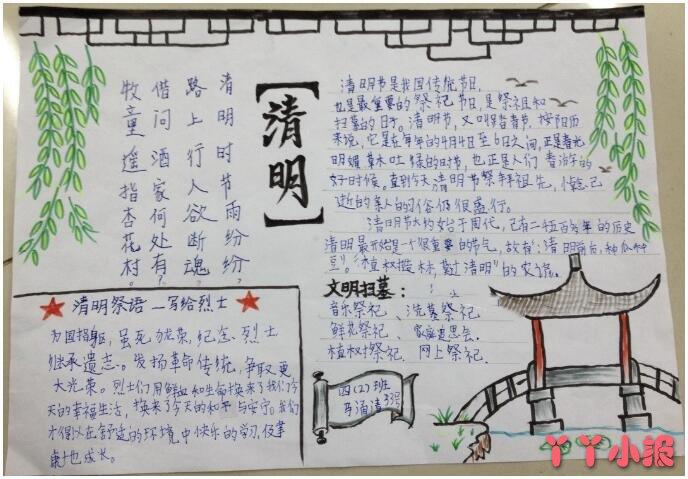 清明时节雨纷纷，
路上行人欲断魂。
借问酒家何处有？
牧童遥指杏花村。
【清明】
清明节是我国传统节日，
也是最重要的祭祀节日，是祭祖和
扫墓的日子。清明节，又叫踏青节，按阳历
来说，它是在每年的4月4日至6日之间，正是春光
明媚草木吐绿的时节，也正是人们春游的
好时候。直到今天，清明节祭拜祖先，悼念已
逝的亲人的习俗仍很盛行。
清明节大约始于周代，已有二千五百多年的历史
清明最开始是一个很重要的节气，故有“清明前后，种瓜种
豆”。“植树造林，莫过清明”的农谚。
文明扫墓：
音乐祭祀、洗墓祭祀
鲜花祭祀、家庭追思会、
植树祭祀、网上祭祀.
清明祭语—写给烈士
为国捐躯，虽死犹荣，纪念烈士
继承遗志。发扬革命传统，争取更
大光荣。烈士们用鲜血和生命换来了我们今
天的幸福生活，换来了今天的和平与安宁。我们
才得以在舒适的环境中快乐的学习，健
康地成长。
四(2)班
马涌清
丫丫小报